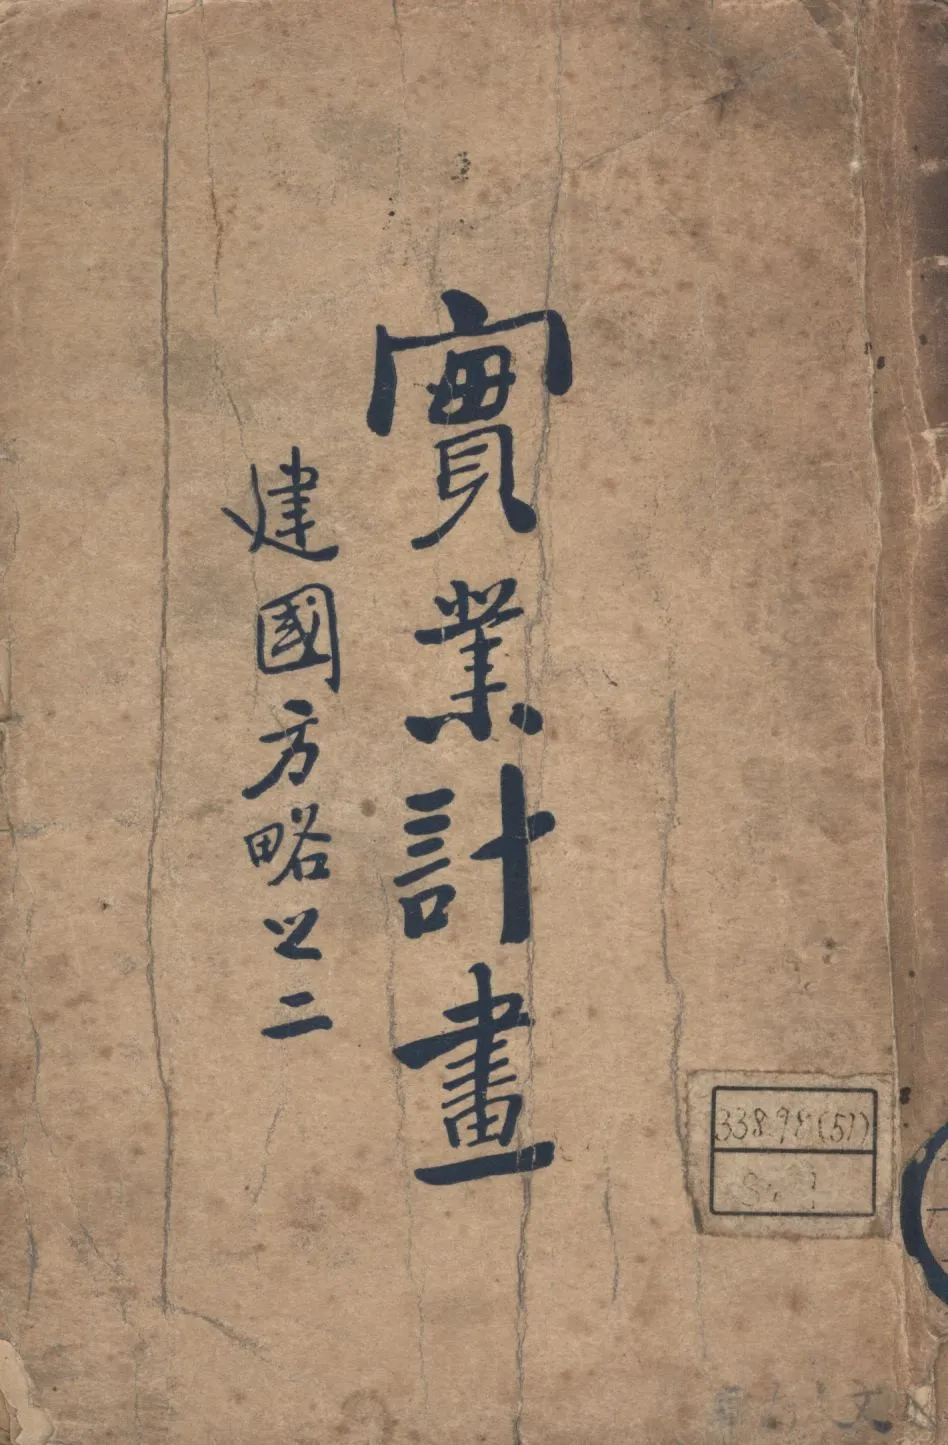 實業計畫
建國方略之二
338.98(51)